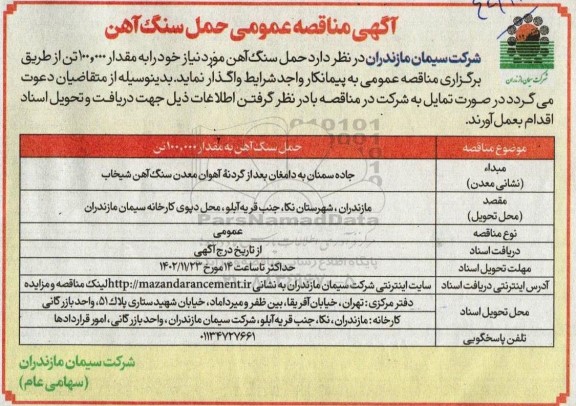 آگهی مناقصه عمومی حمل سنگ آهن
شرکت سیمان مازندران
شرکت سیمان مازندران در نظر دارد حمل سنگ آهن مورد نیاز خود را به مقدار ۱۰۰,۰۰۰ تن از طریق
برگزاری مناقصه عمومی به پیمانکار واجد شرایط واگذار نماید. بدینوسیله از متقاضیان دعوت
می گردد در صورت تمایل به شرکت در مناقصه با در نظر گرفتن اطلاعات ذیل جهت دریافت و تحویل اسناد
اقدام بعمل آورند.
موضوع مناقصه حمل سنگ آهن به مقدار ۱۰۰,۰۰۰ تن
مبداء (نشانی معدن) جاده سمنان به دامغان بعد از گردنۀ آهوان معدن سنگ آهن شیخاب
مقصد (محل تحویل) مازندران ، شهرستان نکا، جنب قریه آبلو ، محل دپوی کارخانه سیمان مازندران
نوع مناقصه عمومی
دریافت اسناد از تاریخ درج آگهی
مهلت تحویل اسناد حداکثر تا ساعت ۱۴ مورخ ۱۴۰۲/۱۱/۲۳
آدرس اینترنتی دریافت اسناد سایت اینترنتی شرکت سیمان مازندران به نشانی http://mazandarancement.ir لینک مناقصه و مزایده
محل تحویل اسناد دفتر مرکزی: تهران ، خیابان آفریقا، بین ظفر و میرداماد، خیابان شهید ستاری پلاک ۵۱، واحد بازرگانی
کارخانه : مازندران ، نکا، جنب قریه آبلو، شرکت سیمان مازندران ، واحد بازرگانی ، امور قراردادها
تلفن پاسخگویی ۰۱۱۳۴۷۲۷۶۶۱
شرکت سیمان مازندران
(سهامی عام)
ParsNamadData